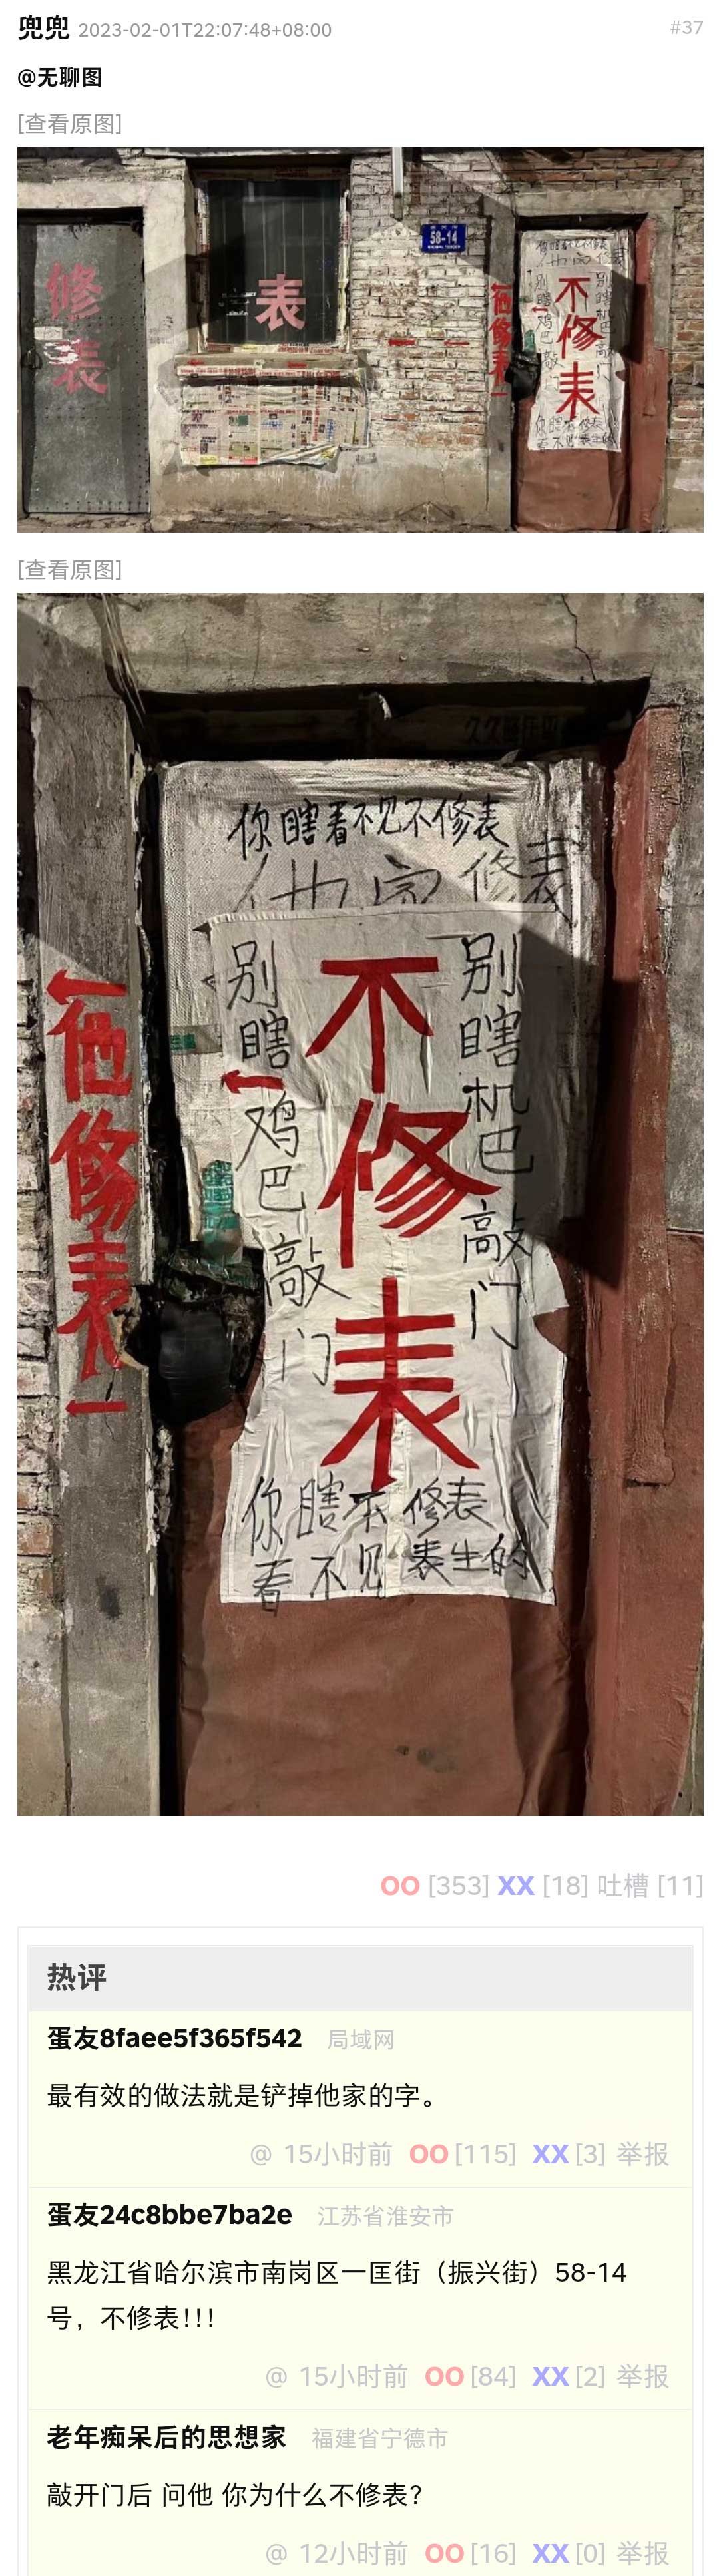 兜兜 2023-02-01T22:07:48+08:00 #37
@无聊图
[查看原图]
修表
表
58-14
他修表
不修表
[查看原图]
你瞎看不见不修表
他家修表
别瞎鸡巴敲门
不修表
别瞎机巴敲门
他修表
你瞎不修表
看不见表生的
OO [353] XX [18] 吐槽 [11]
热评
蛋友8faee5f365f542 局域网
最有效的做法就是铲掉他家的字。
@ 15小时前 OO [115] XX [3] 举报
蛋友24c8bbe7ba2e 江苏省淮安市
黑龙江省哈尔滨市南岗区一匡街（振兴街）58-14
号，不修表!!!
@ 15小时前 OO [84] XX [2] 举报
老年痴呆后的思想家 福建省宁德市
敲开门后 问他 你为什么不修表?
@ 12小时前 OO [16] XX [0] 举报